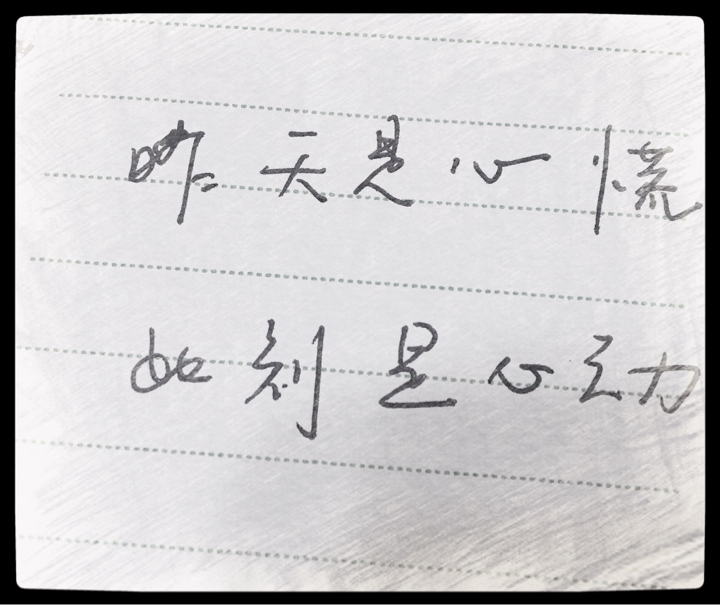 昨天是心慌
此刻是心动